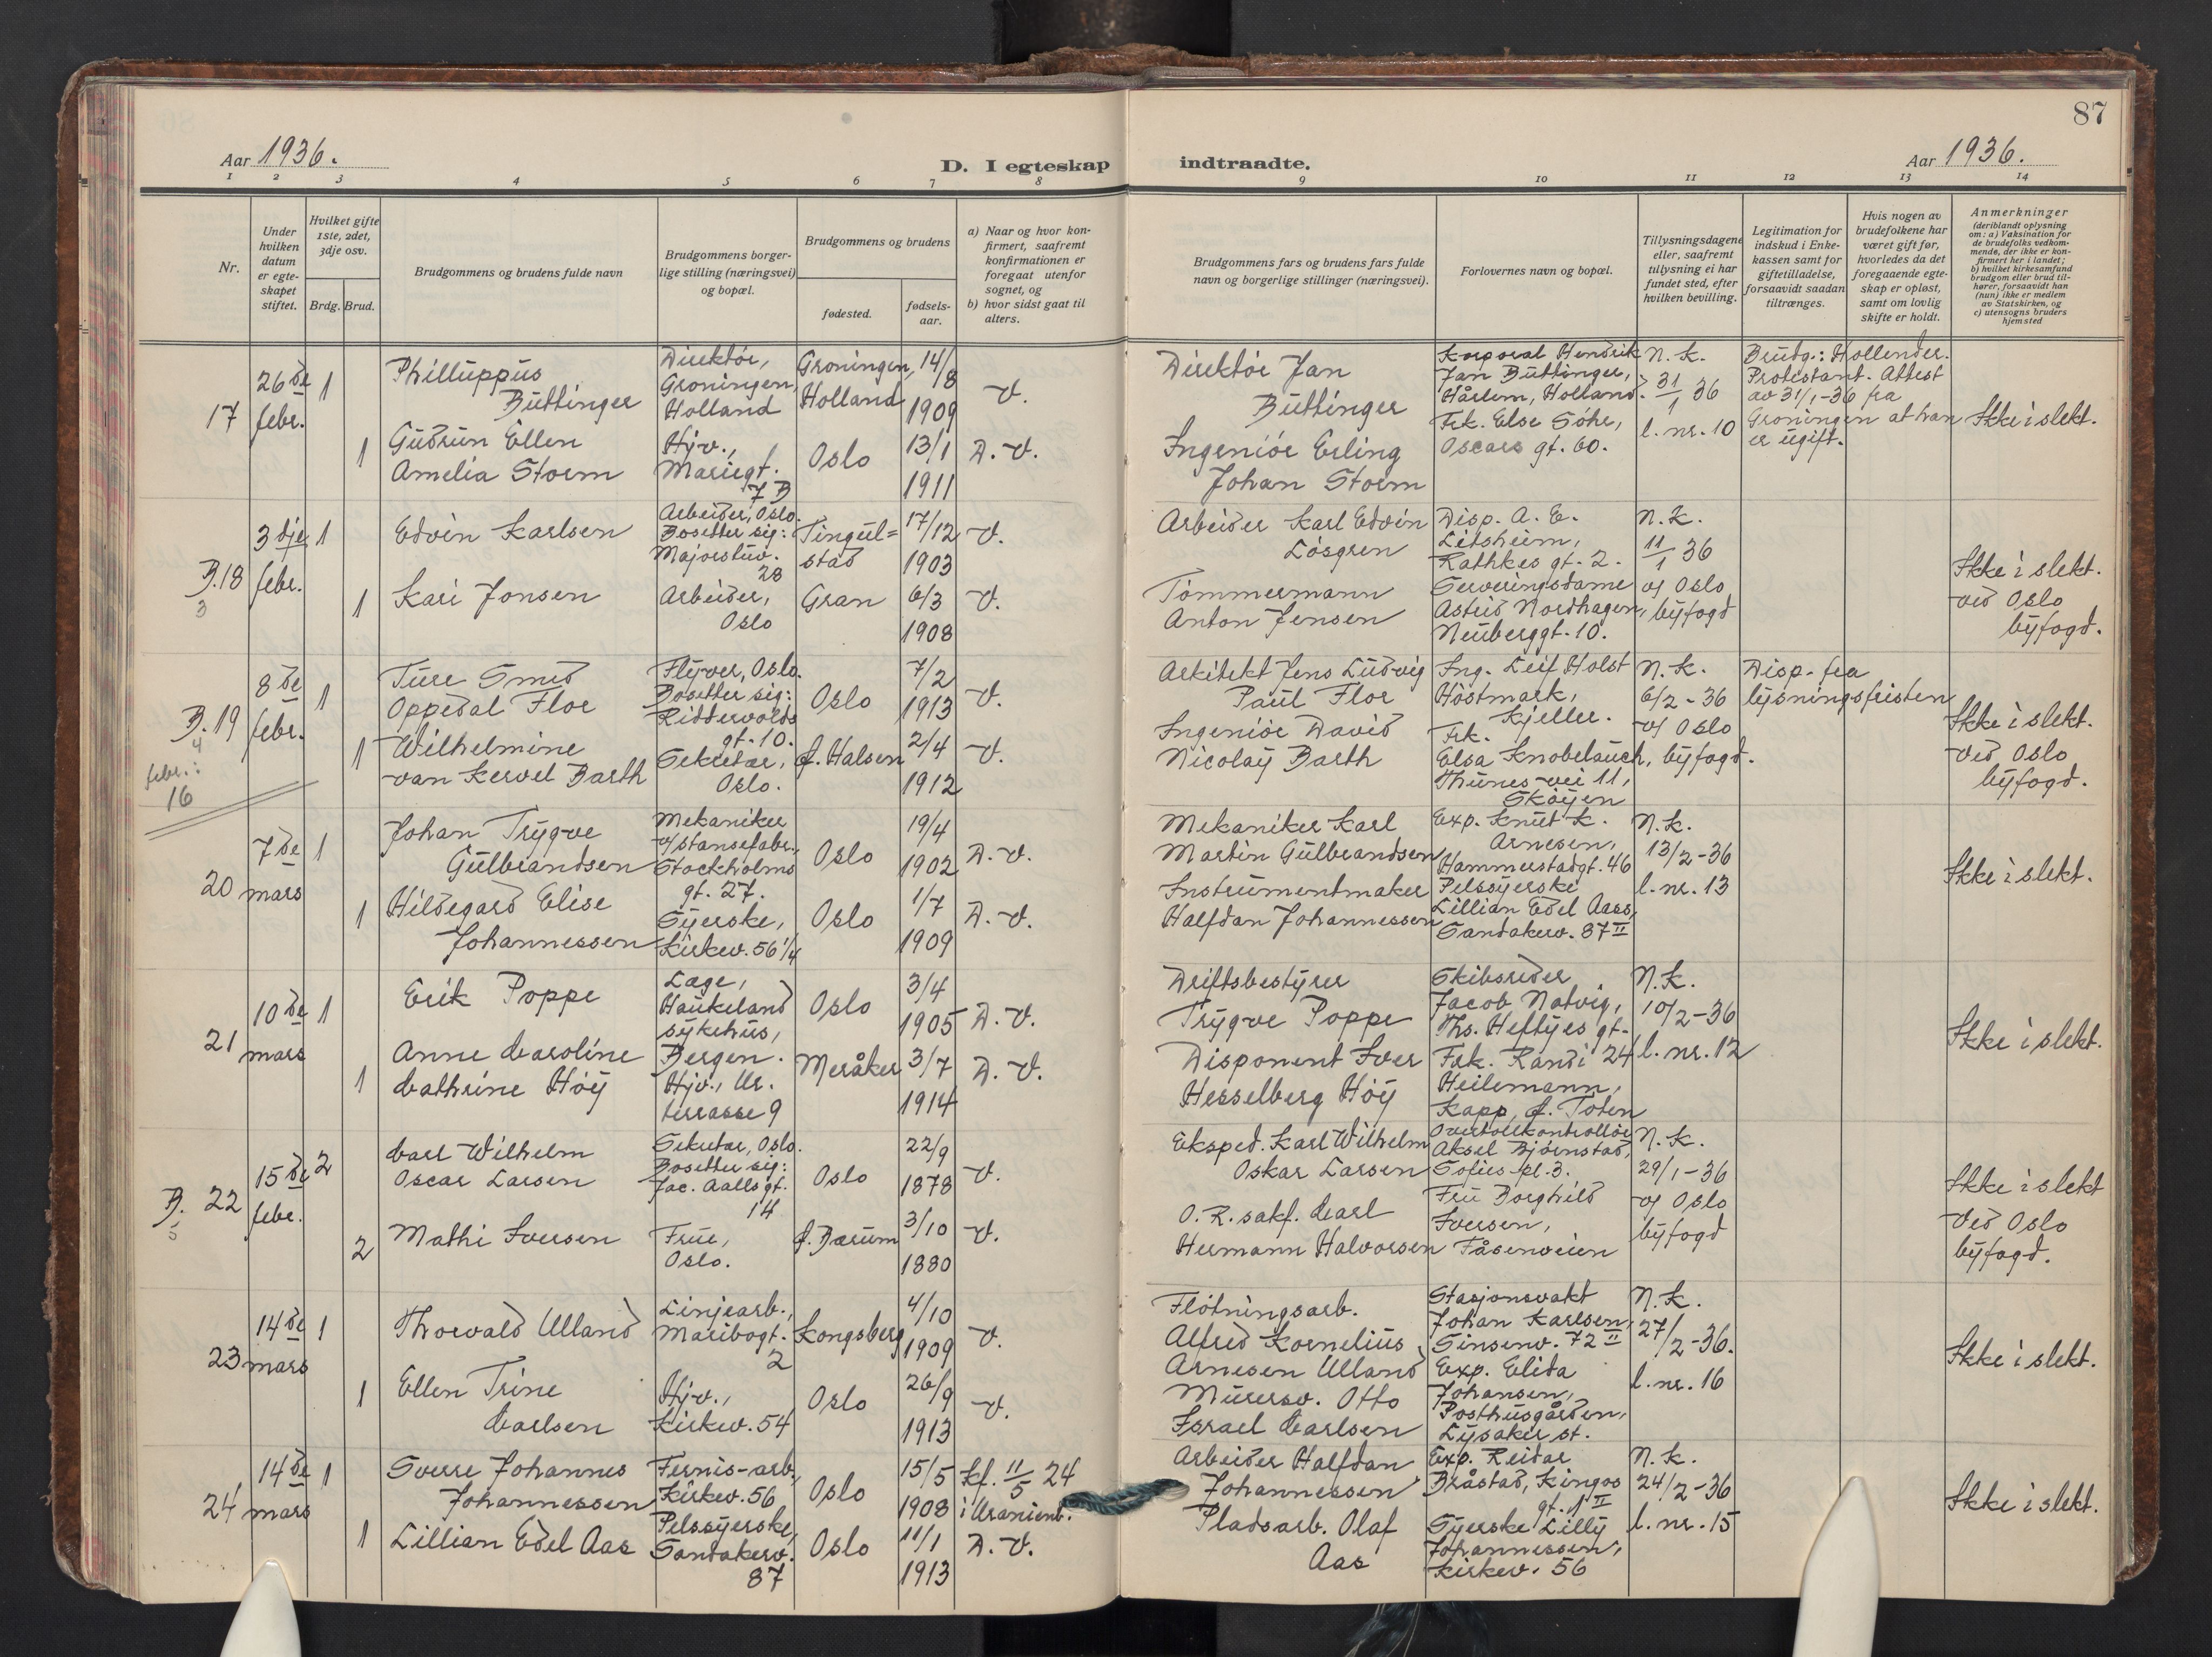 87
Aar 1936.
D. I egteskap indtraadte.
Aar 1936.
1 2 3 4 5 6 7 8 9 10 11 12 13 14
Nr.
Under hvilken datum er egteskapet stiftet.
Hvilket gifte 1ste, 2det, 3dje osv.
Brdg. Brud.
Brudgommens og brudens fulde navn
Brudgommens borgerlige stilling (næringsvei) og bopæl.
Brudgommens og brudens
fødested.
fødselsaar.
a) Naar og hvor konfirmert, saafremt konfirmationen er foregaat utenfor sognet, og
b) hvor sidst gaat til alters.
Brudgommens fars og brudens fars fulde navn og borgerlige stillinger (næringsvei).
Forlovernes navn og bopæl.
Tillysningsdagene eller, saafremt tillysning ei har fundet sted, efter hvilken bevilling.
Legitimation for indskud i Enkekassen samt for giftetilladelse, forsaavidt saadan tiltrænges.
Hvis nogen av brudefolkene har været gift før, hvorledes da det foregaaende egteskap er opløst, samt om lovlig skifte er holdt.
Anmerkninger (deriblandt oplysning om: a) Vaksination for de brudefolks vedkommende, der ikke er konfirmert her i landet; b) hvilket kirkesamfund brudgom eller brud tilhører, forsaavidt han (hun) ikke er medlem av Statskirken, og c) utensogns bruders hjemsted
17
26de febr.
1
Philluppus Büttinger
Direktör, Groningen, Holland
Groningen, Holland
14/8 1909
V.
Direktör Jan Büttinger
Korporal Hendrik Jan Büttinger, Hårlem, Holland.
Frk. Else Söhr, Oscars gt. 60.
N. K.
31/1 36
l. nr. 10
Brudg.: Hollender. Protestant. Attest av 31/1-36 fra Groningen at han er ugift.
Ikke i slekt.
1
Gudrun Ellen Amelia Storm
Hjv., Mariegt. 7 B
Oslo
13/1 1911
D. V.
Ingeniör Erling Johan Storm
B. 18
3
3dje febr.
1
Edvin Karlsen
Arbeider, Oslo. Bosetter sig: Majorstuv. 28
Tingelstad
17/12 1903
V.
Arbeider Karl Edvin Lösgren
Disp. A. E. Litsheim, Rathkes gt. 2.
Serveringsdame Astrid Nordhagen, Neuberggt. 10.
N. K.
11/1 36
v/ Oslo byfogd
Ikke i slekt.
ved Oslo byfogd.
1
Kari Jonsen
Arbeider, Oslo
Gran
6/3 1908
V.
Tömmermann Anton Jensen
B. 19
4
8de febr.
1
Ture Smed Oppedal Flor
Flyver, Oslo. Bosetter sig: Riddervolds gt. 10.
Oslo
7/2 1913
V.
Arkitekt Jens Ludvig Paul Flor
Ing. Leif Holst Höstmark, Kjeller.
Frk. Elsa Knobelauch, Thunes vei 11, Sköyen
N. K.
6/2-36
v/ Oslo byfogd.
Disp. fra lysningsfristen
Ikke i slekt.
ved Oslo byfogd.
1
Wilhelmine van Kervel Barth
Sekretær, Oslo.
f. Halsen
2/4 1912
V.
Ingeniör David Nicolay Barth
febr.: 16
20
7de mars
1
Johan Trygve Gulbrandsen
Mekaniker v/stansefabr., Stockholms gt. 27.
Oslo
19/4 1902
D. V.
Mekaniker Karl Martin Gulbrandsen
Exp. Knut K. Arnesen, Hammerstadgt. 46
Pelssyerske Lillian Edel Aas, Sandakerv. 87 II
N. K.
13/2-36
l. nr. 13
Ikke i slekt.
1
Hildegard Elise Johannessen
Syerske, Kirkev. 56 1/4
Oslo
1/7 1909
D. V.
Instrumentmaker Halfdan Johannessen
21
10de mars
1
Erik Poppe
Læge, Haukeland sykehus, Bergen.
Oslo
3/4 1905
D. V.
Driftsbestyrer Trygve Poppe
Skibsreder Jacob Natvig, Ths. Heftyes gt. 24
Frk. Randi Heilemann, Kapp, Ö. Toten
N. K.
10/2-36
l. nr. 12
Ikke i slekt.
1
Anne Caroline Cathrine Höy
Hjv., Ur. terrasse 9
Meråker
3/7 1914
D. V.
Disponent Iver Hesselberg Höy
B. 22
5
15de febr.
2
Carl Wilhelm Oscar Larsen
Sekretær, Oslo. Bosetter sig: Jac. Aalls gt. 14
Oslo
22/9 1878
V.
Eksped. Karl Wilhelm Oskar Larsen
Overtollkontrollör Aksel Bjørnstad, Sofies pl. 3.
Fru Borghild Iversen, Fåsenveien
N. K.
29/1-36
v/ Oslo byfogd
Ikke i slekt
ved Oslo byfogd.
2
Mathi Iversen
Frue, Oslo.
f. Bærum
3/10 1880
V.
O. R. sakf. Carl Hermann Halvorsen
23
14de mars
1
Thorvald Ulland
Linjearb., Maribogt. 2
Kongsberg
4/10 1909
V.
Flötningsarb. Alfred Kornelius Arnesen Ulland
Stasjonsvakt Johan Karlsen, Sinsenv. 72 II
Exp. Elida Johansen, Posthusgården, Lysaker st.
N. K.
27/2-36.
l. nr. 16
Ikke i slekt.
1
Ellen Trine Carlsen
Hjv., Kirkev. 54
Oslo
26/9 1913
V.
Murersv. Otto Israel Carlsen
24
14de mars
1
Sverre Johannes Johannessen
Fernis-arb., Kirkev. 56
Oslo
15/5 1908
Kf. 11/5 24 i Uranienb.
Arbeider Halfdan Johannessen
Exp. Reidar Bråstad, Kingos gt. 1 II
Syerske Lilly Johannessen, Kirkev. 56
N. K.
24/2-36
l. nr. 15
Ikke i slekt.
1
Lillian Edel Aas
Pelssyerske, Sandakerv. 87
Oslo
11/1 1913
D. V.
Pladsarb. Olaf Aas